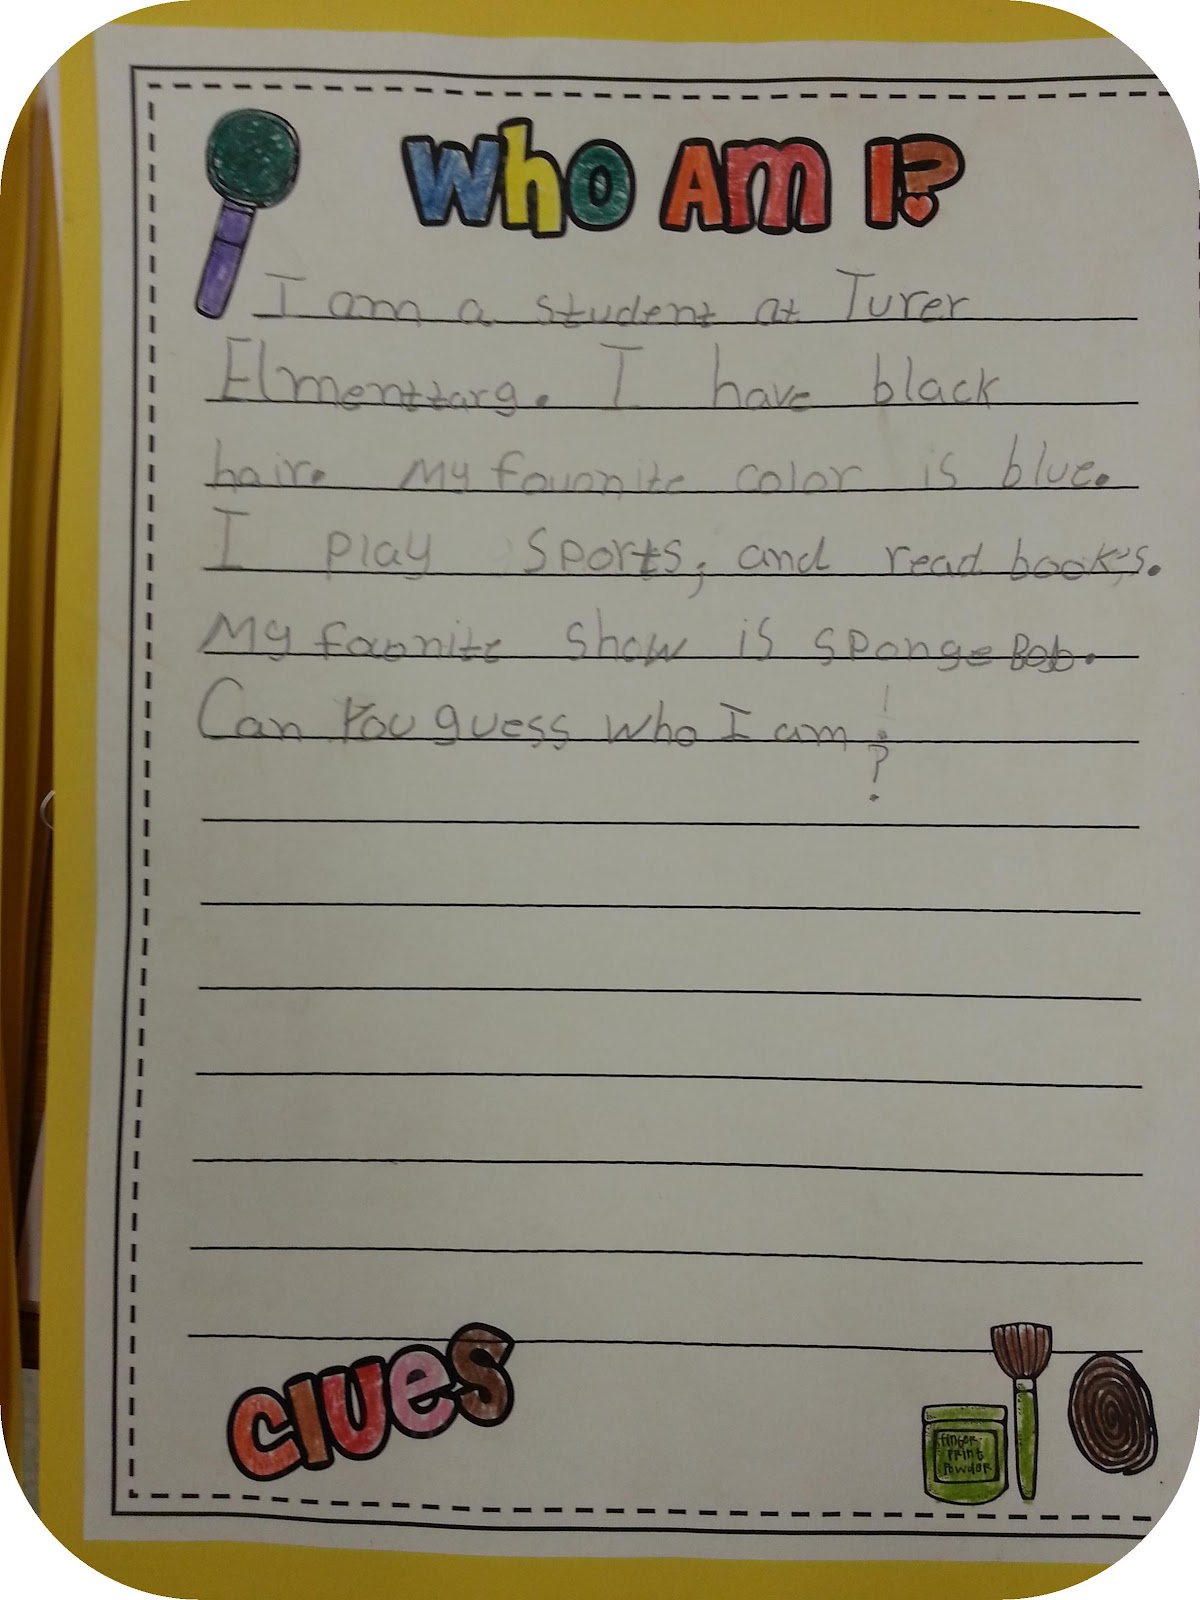 Who Am I?
I am a student at Turer
Elmenttarg. I have black
hair. My favonite color is blue.
I play sports, and read book's.
My favonite show is spongeBob.
Can You guess who I am !
?
clues
finger
print
powder